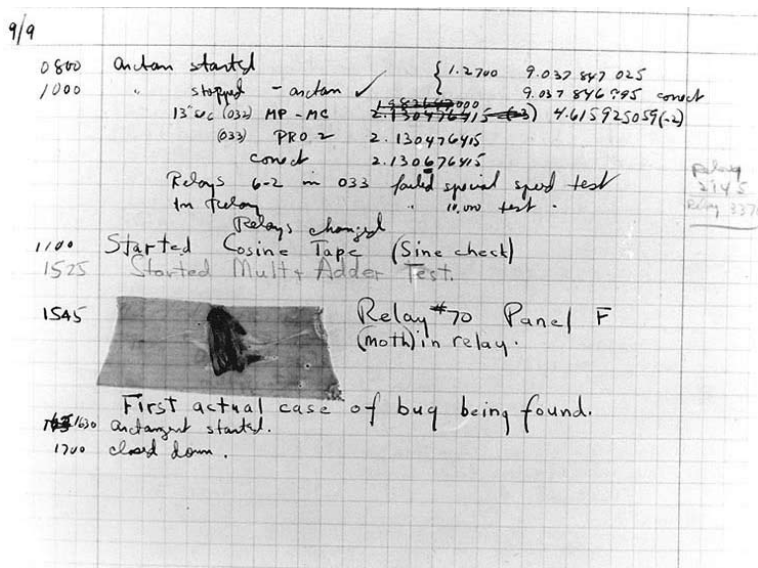 9/9
0800 arctan started { 1.2700 9.037 847 025
1000 " stopped - arctan ✓ 9.037 846 995 corect
13"uc (032) MP-MC 1.982647000 2.130476415 (-3) 4.615925059(-2)
(033) PRO 2 2.130476415
corect 2.130676415
Relays 6-2 in 033 failed special speed test
In Relay " 10,000 test.
Relays changed
Relay
2145
Relay 3370
1100 Started Cosine Tape (Sine check)
1525 Started Mult+ Adder Test.
1545 Relay #70 Panel F
(moth) in relay.
First actual case of bug being found.
1630 arctangent started.
1700 closed down.